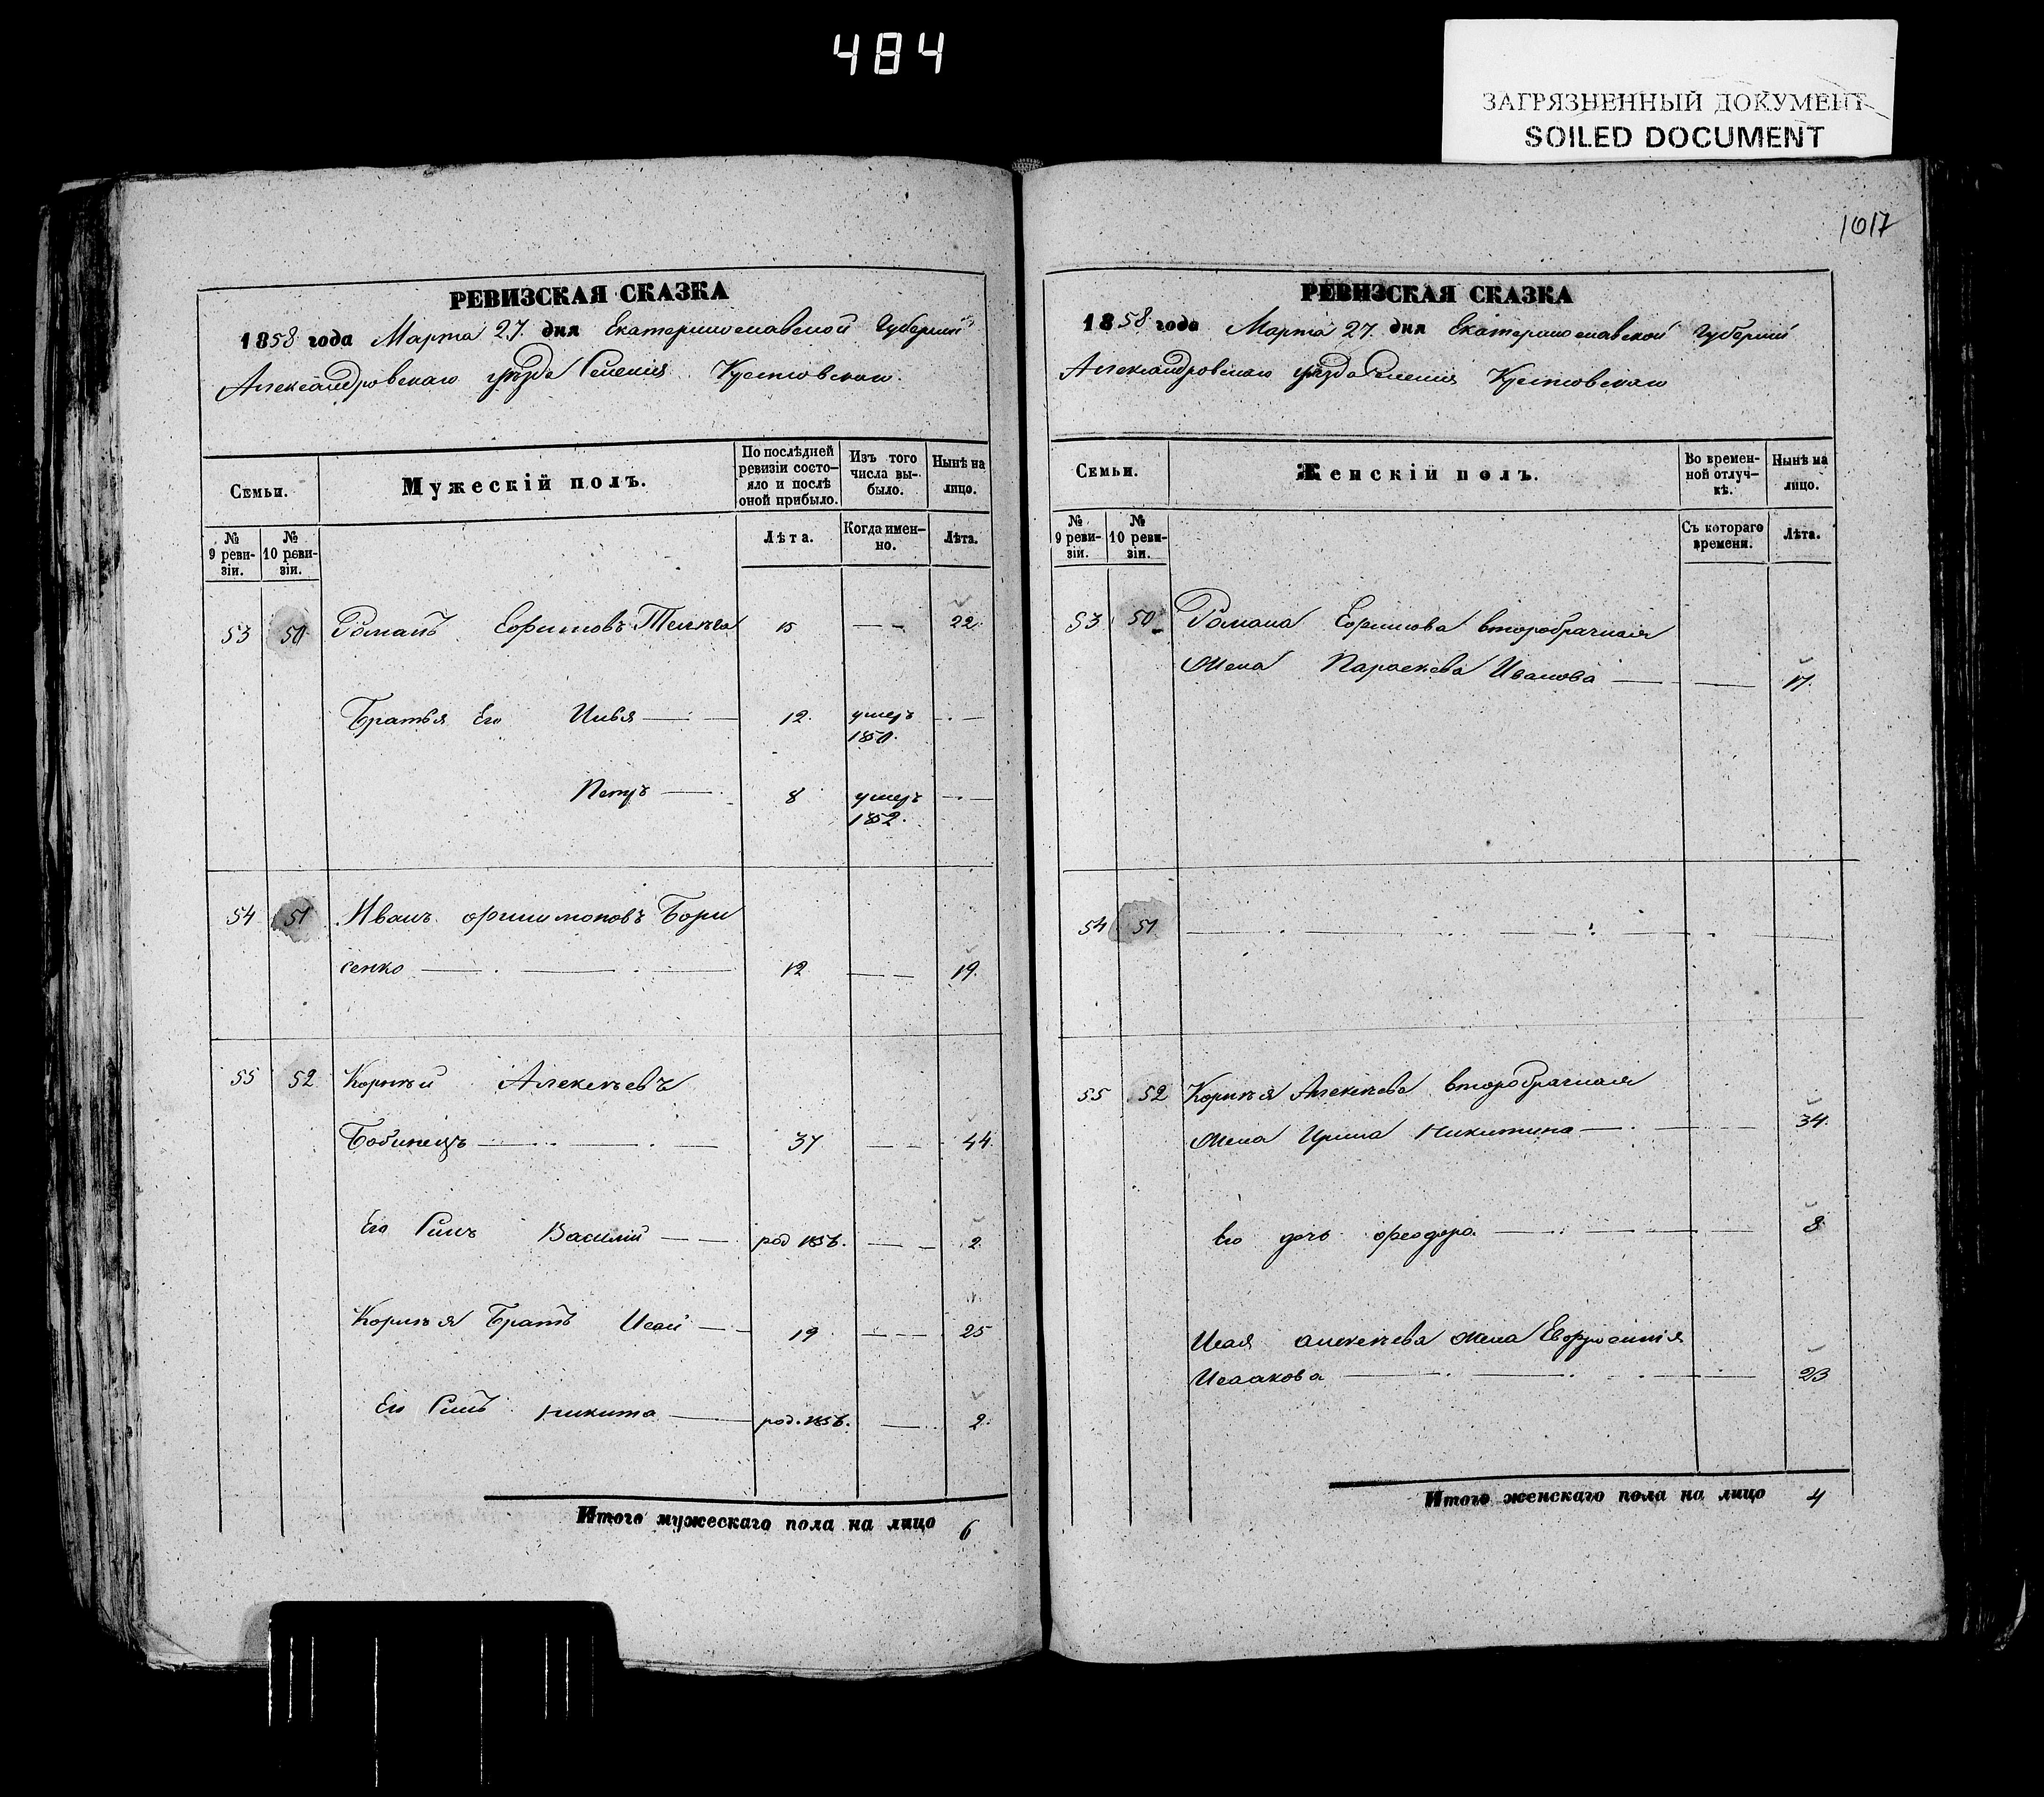 484
ЗАГРЯЗНЕННЫЙ ДОКУМЕНТ
SOILED DOCUMENT
РЕВИЗСКАЯ СКАЗКА
1858 года Марта 27. дня Екатеринославской Губернии
Александровскаго уѣзда Селенія
Семьи.
Мужескій полъ.
По послѣдней ревизіи состо-
яло и послѣ
оной прибыло.
Изъ того
числа вы-
было.
Нынѣ на
лицо.
№ 9 реви-
зіи.
№ 10 реви-
зіи.
Лѣта.
Когда имен-
но.
Лѣта.
53 50 Романъ Ефимовъ 15 — - 22.
Братья Его Илья — — 12. умеръ 1850. — -
Петръ — 8 умеръ 1852. — -
54 51 Иванъ Филимоновъ Бори
сенко — . — . — 12 — — 19.
55 52 Корнѣй Алексѣевъ
Бабинецъ — .. — . — 37 — — 44.
Его Сынъ Василій — — род 1856. — — 2.
Корнѣя Братъ Исай — — 19 — - — 25
Его Сынъ Никита — род. 1856. — . 2.
Итого мужескаго пола на лицо 6
1017
РЕВИЗСКАЯ СКАЗКА
1858 года Марта 27. дня Екатеринославской Губерніи
Александровскаго уѣзда Селенія
Семьи.
Женскій полъ.
Во времен-
ной отлуч-
кѣ.
Нынѣ на
лицо.
№ 9 реви-
зіи.
№ 10 реви-
зіи.
Съ котораго
времени.
Лѣта.
53 50 Романа Ефимова второбрачная
жена Параскева Иванова — — 17.
54 51
55 52 Корнѣя Алексѣева второбрачная
жена Ирина Никитина — . — — 34.
Его дочь Феодора — .. — . — 8
Исая Алексѣева жена Евфросинія
Исаакова — . — .. — . — 23
Итого женскаго пола на лицо 4